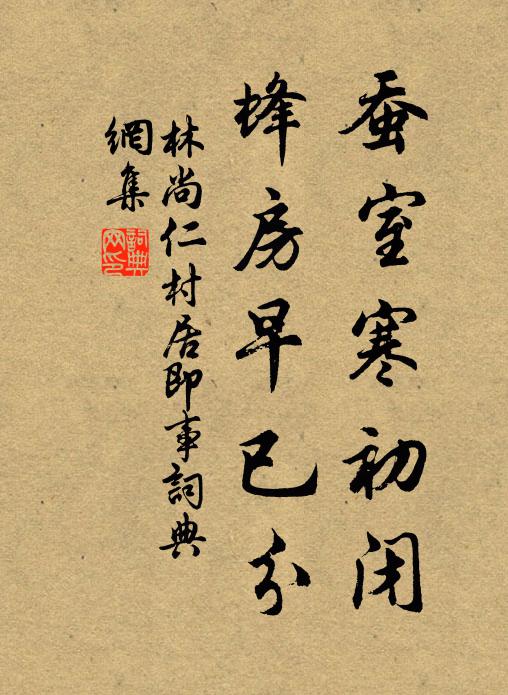 蚕室寒初闭
蜂房早已分
林尚仁村居即事詞典
網集
詞典
网印